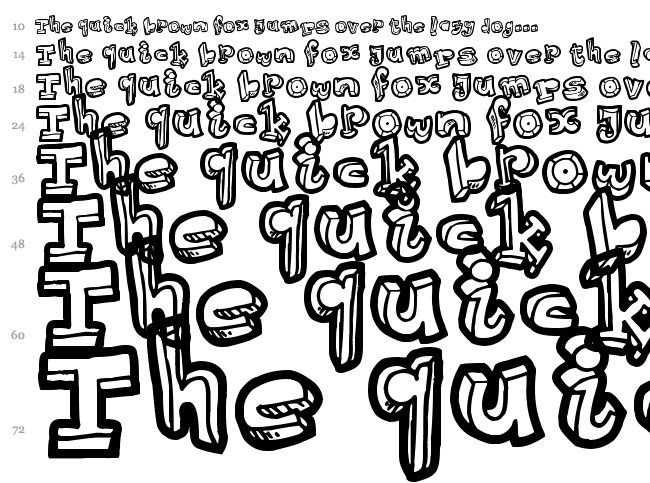 10 The quick brown fox jumps over the lazy dog...
14 The quick brown fox jumps over the l
18 The quick brown fox jumps ov
24 The quick brown fox ju
36 The quick brown
48 The quick b
60 The quick
72 The qui